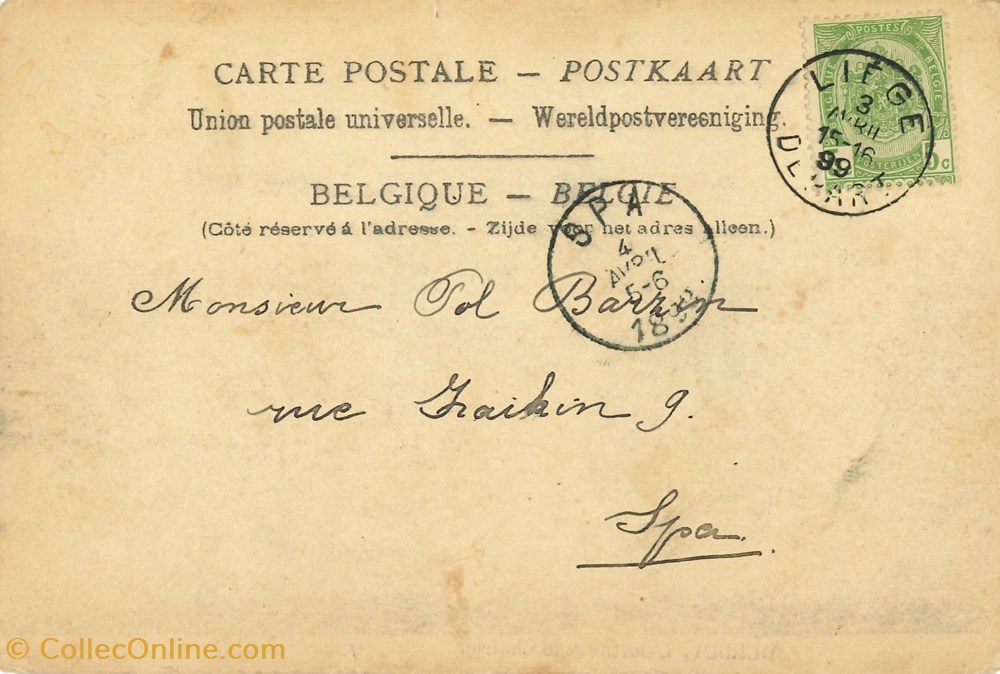 CARTE POSTALE — POSTKAART
Union postale universelle. — Wereldpostvereeniging.
BELGIQUE — BELGIE
(Côté réservé à l'adresse. - Zijde voor het adres alleen.)
LIÉGE
3
AVRIL
15-16
99
DEPART
POSTES
SPA
4
AVRIL
5-6
1899
Monsieur Pol Barzin
rue 9.
Spa.
© CollecOnline.com